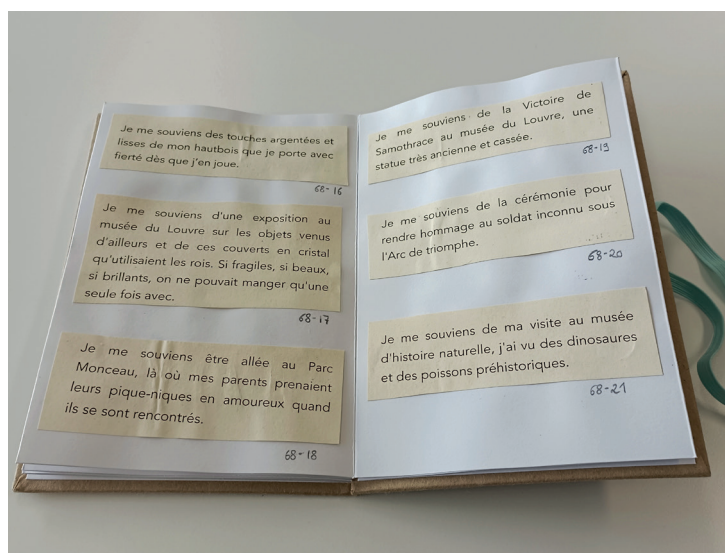 Je me souviens des touches argentées et
lisses de mon hautbois que je porte avec
fierté dès que j'en joue.
68-16
Je me souviens d'une exposition au
musée du Louvre sur les objets venus
d'ailleurs et de ces couverts en cristal
qu'utilisaient les rois. Si fragiles, si beaux,
si brillants, on ne pouvait manger qu'une
seule fois avec.
68-17
Je me souviens être allée au Parc
Monceau, là où mes parents prenaient
leurs pique-niques en amoureux quand
ils se sont rencontrés.
68-18
Je me souviens de la Victoire de
Samothrace au musée du Louvre, une
statue très ancienne et cassée.
68-19
Je me souviens de la cérémonie pour
rendre hommage au soldat inconnu sous
l'Arc de triomphe.
68-20
Je me souviens de ma visite au musée
d'histoire naturelle, j'ai vu des dinosaures
et des poissons préhistoriques.
68-21